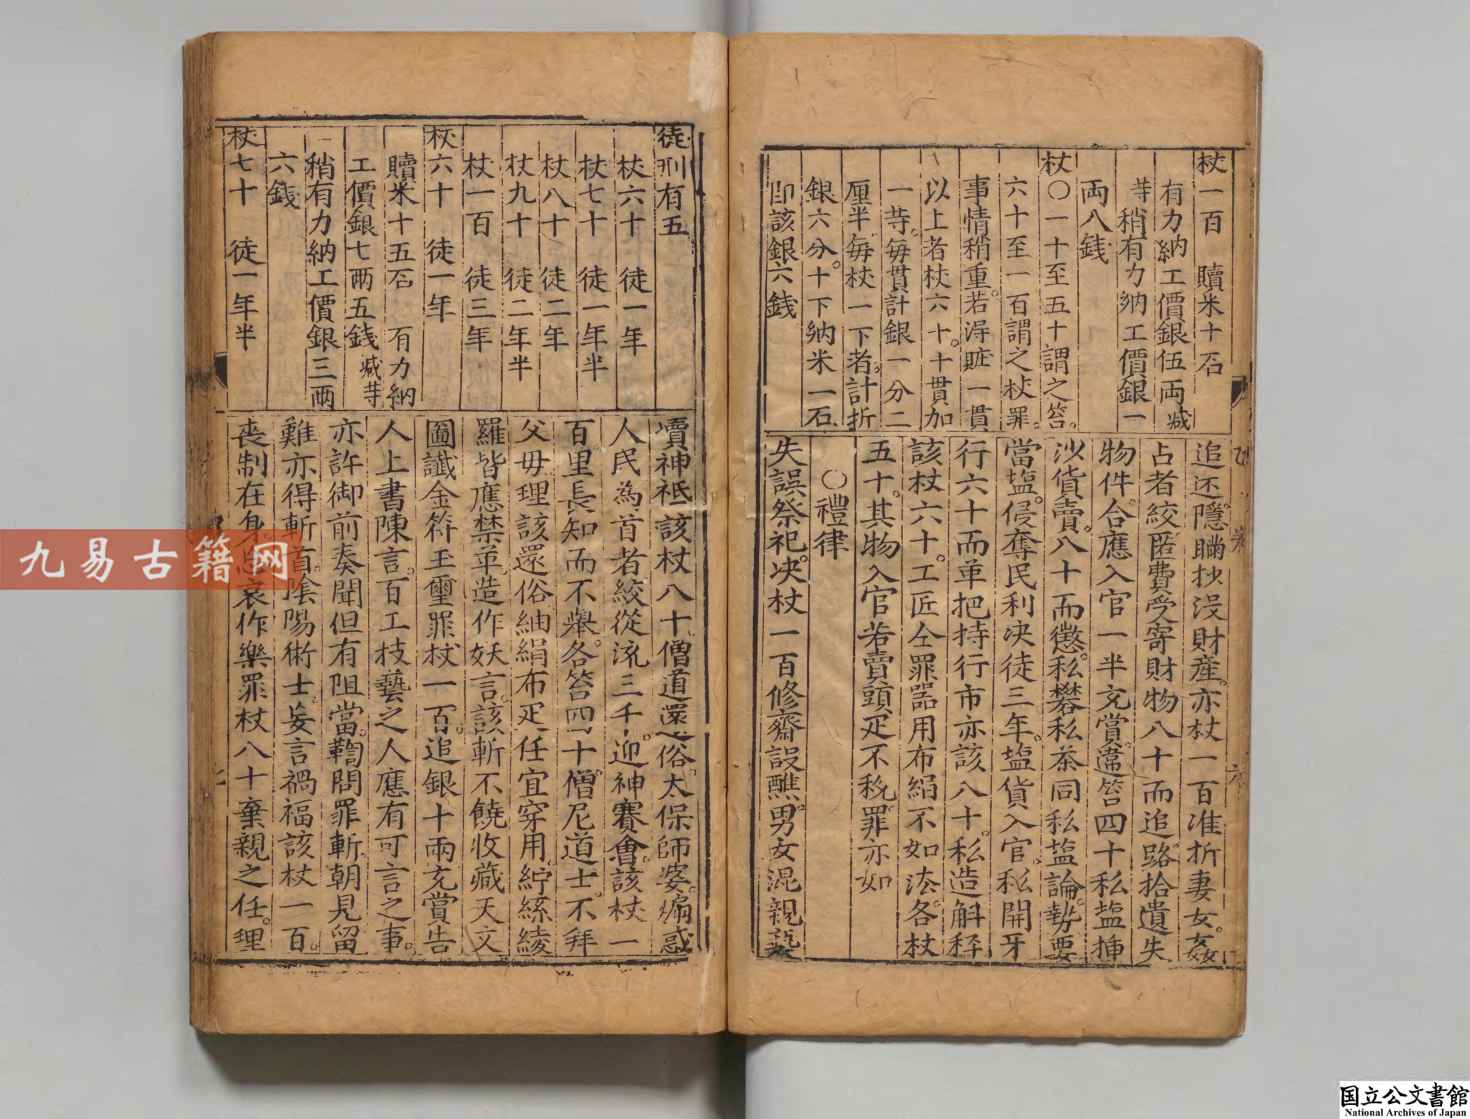 杖一百　贖米十石
有力納工價銀伍兩贓
䓁稍有力納工價銀一
兩八錢
杖〇一十至五十謂之笞。
六十至一百謂之杖罪。
事情稍重。若淂賍一貫
以上者杖六十。十貫加
一䓁。每貫計銀一分二
厘半。每杖一下者。計折
銀六分。十下納米一石
即該銀六錢
追还。隱瞞抄没財産。亦杖一百准折妻女。姦
占者絞。匿費受寄財物八十而追。路拾遺失
物件。合應入官一半充賞。違笞四十私塩揷
沙貨賣。八十而懲。私礬私茶同私塩論。勢要
當塩。侵奪民利决徒三年。塩貨入官。私開牙
行六十而革把持行市亦該八十。私造斛秤
該杖六十。工匠仝罪器用布絹不如法。各杖
五十。其物入官若賣頭疋不稅。罪亦如
〇禮律
失誤祭祀。决杖一百修齋設醮。男女混親䙝
徒刑有五
杖六十　徒一年
杖七十　徒一年半
杖八十　徒二年
杖九十　徒二年半
杖一百　徒三年
杖六十　徒一年
贖米十五石　有力納
工價銀七兩五錢贓䓁
稍有力納工價銀三兩
六錢
杖七十　徒一年半
凟神祇該杖八十僧道還俗。太保師婆。煽惑
人民為首者絞從流三千。迎神賽會。該杖一
百里長知而不舉。各笞四十僧尼道士。不拜
父母理該還俗紬絹布疋任宜穿用。紵絲綾
羅皆應禁革造作妖言。該斬不饒收藏天文
圖讖金符玉璽罪杖一百。追銀十兩充賞告
人上書陳言。百工技藝之人應有可言之事。
亦許御前奏聞但有阻當。鞫問罪斬朝見留
難亦得斬首。陰陽術士。妄言禍福該杖一百。
喪制在身忘哀作樂罪杖八十棄親之任。理
九易古籍网
国立公文書館
National Archives of Japan